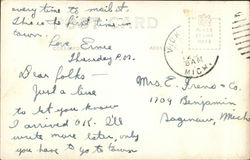 every time to mail it.
This is to first time in
town.
Love Ernie
Thursday P.M.
Dear folks —
Just a line
to let you know
I arrived O.K. Ill
write more later, only
you have to go to town
MICH.
8 AM
Mrs. E. Frens + Co.
1709 Benjamin
Saginaw, Mich